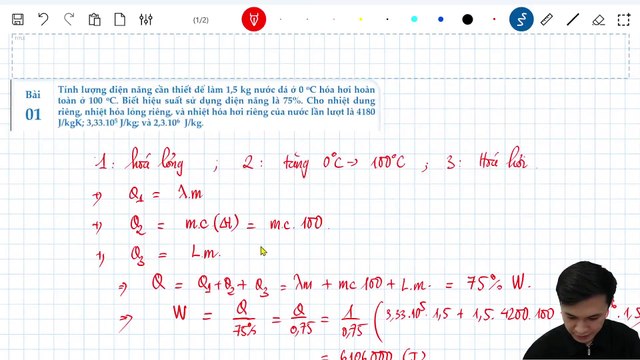 (1/2)
Bài
01
Tính lượng điện năng cần thiết để làm 1,5 kg nước đá ở 0 °C hóa hơi hoàn
toàn ở 100 °C. Biết hiệu suất sử dụng điện năng là 75%. Cho nhiệt dung
riêng, nhiệt hóa lỏng riêng, và nhiệt hóa hơi riêng của nước lần lượt là 4180
J/kgK; 3,33.10⁵ J/kg; và 2,3.10⁶ J/kg.
1: hoá lỏng ; 2: tăng 0°C → 100°C ; 3: Hoá hơi.
→ Q₁ = λ.m
→ Q₂ = m.c(Δt) = m.c.100.
→ Q₃ = L.m.
⇒ Q = Q₁+Q₂+Q₃ = λm + mc100 + L.m. = 75% W.
⇒ W = Q/75% = Q/0,75 = 1/0,75 (3,33.10⁵.1,5 + 1,5.4200.100
= 6106000 (J)